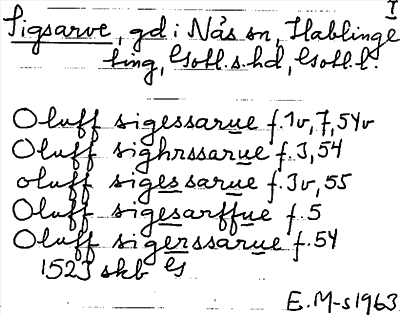 I
Sigsarve, gd i Näs sn, Hablinge
ting, Gotl. s. hd, Gotl. l.
Oluff sigessarue f. 1v, 7, 54v
Oluff sighrssarue f. 3, 54
oluff sigessarue f. 3v, 55
Oluff sigesarffue f. 5
Oluff sigerssarue f. 54
1523 skb G
E. M-s 1963